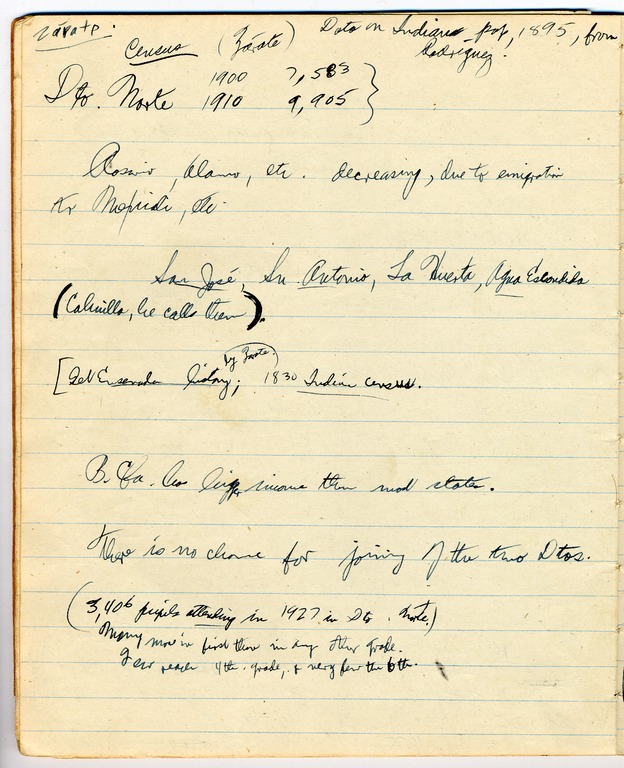 Zárate.
Census (Zárate) Data on Indian pop, 1895, from
Rodríguez.
1900 7,583
Dto. Norte 1910 9,905
Rosario, Alamo, etc. decreasing, due to emigration
to Mexicali, etc.
San José, Sn Antonio, La Huerta, Agua Escondida
(Cahuilla, he calls them).
by Zárate.
[Get Ensenada history; 1830 Indian census.
B. Cfa. has bigger income than most states.
There is no chance for joining of the two Dtos.
(3,406 pupils attending in 1927 in Dto. Norte.)
Many more in first than in any other grade.
Few reach 4th. grade, & very few the 6th.